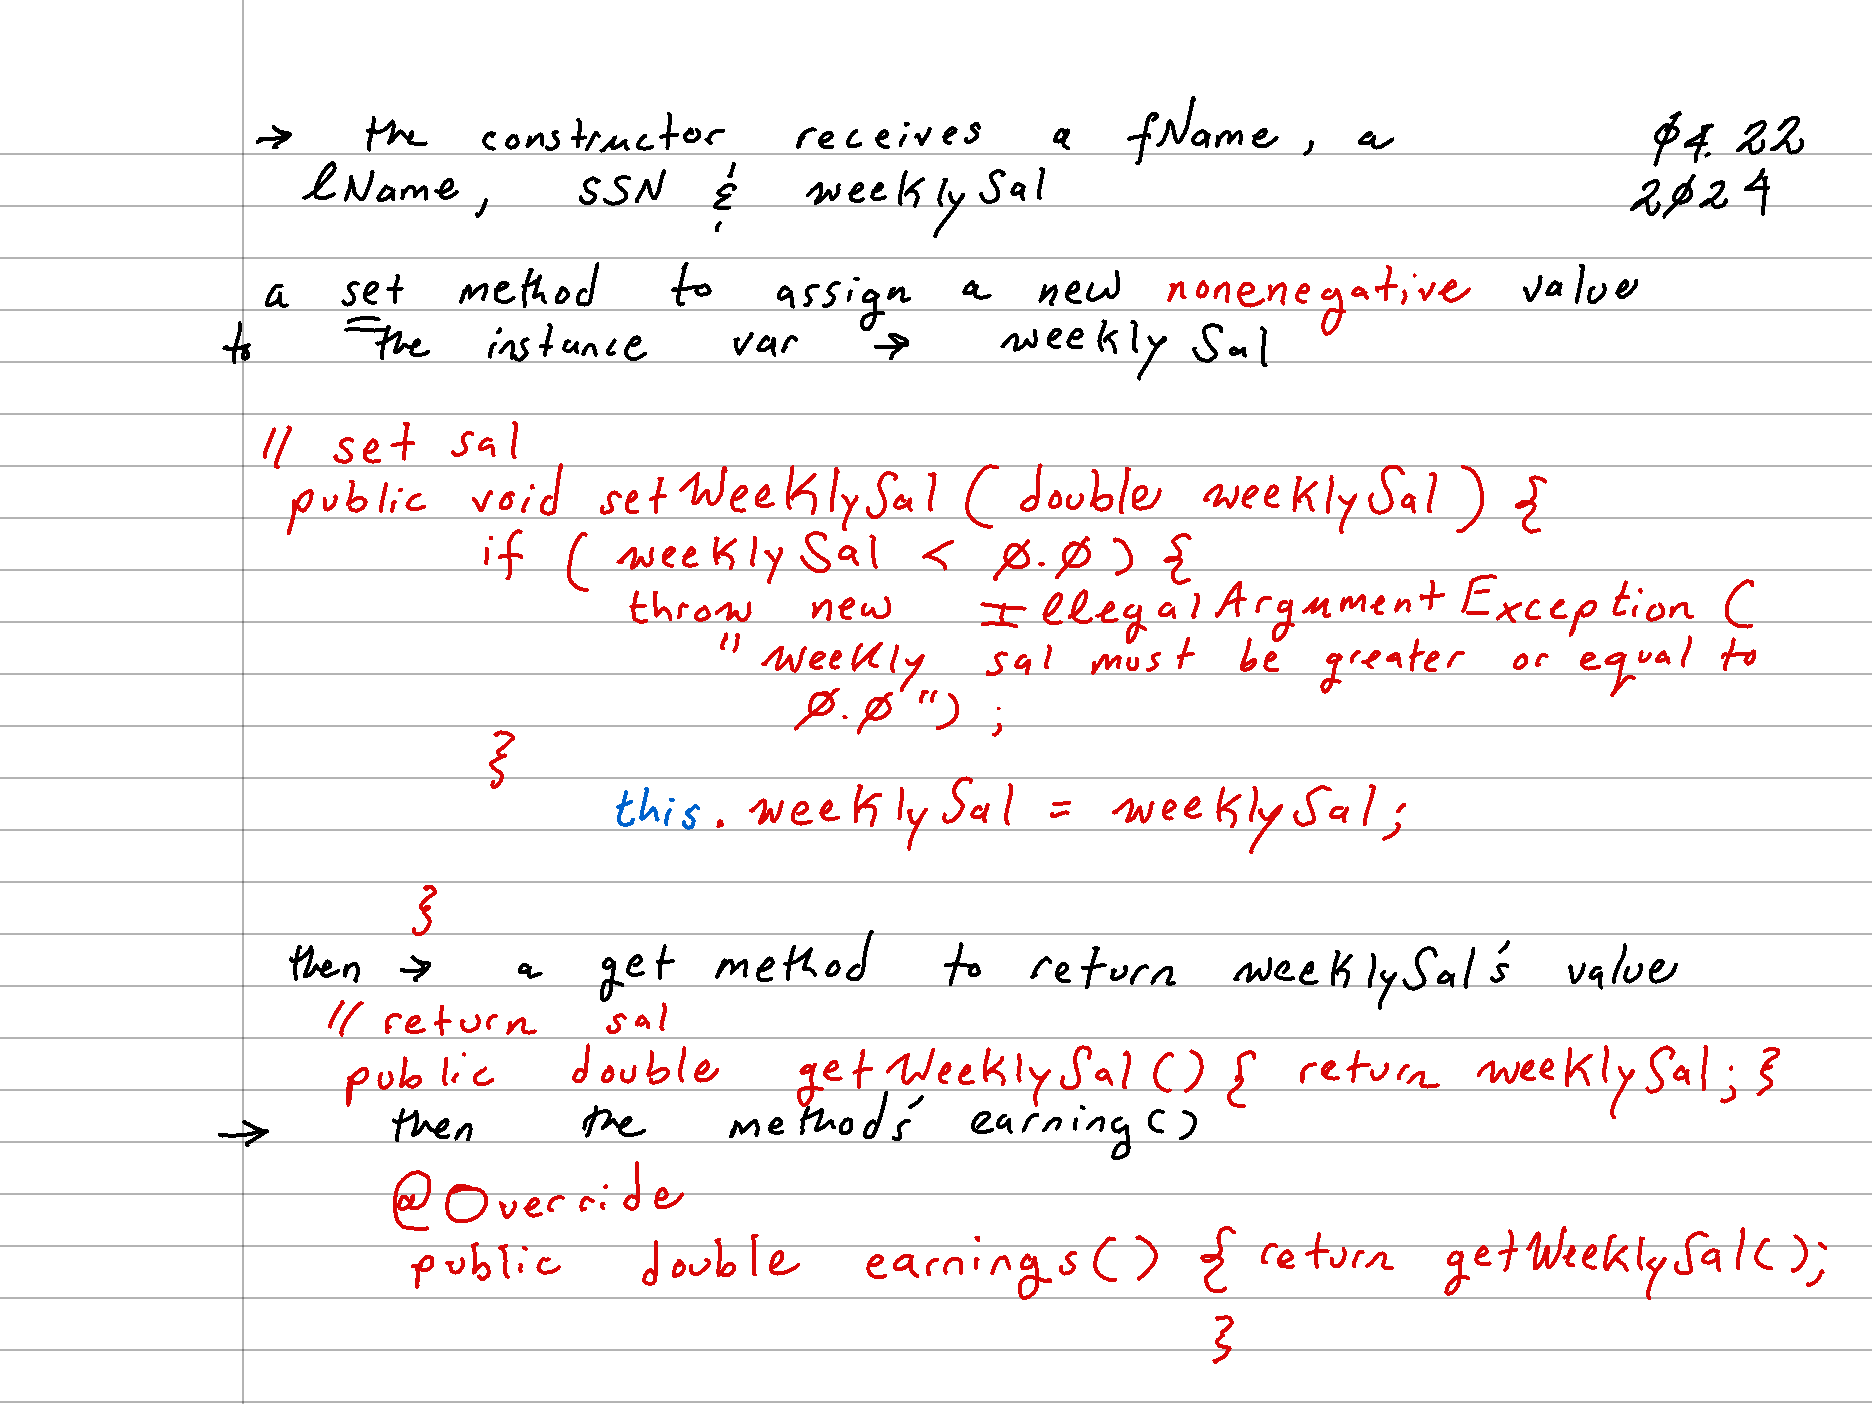 → the constructor receives a fName, a
04.22
lName, SSN & weeklySal
2024
a set method to assign a new nonenegative value
to the instance var → weeklySal
// set sal
public void setWeeklySal (double weeklySal) {
if (weeklySal < 0.0) {
throw new IllegalArgumentException (
"weekly sal must be greater or equal to
0.0");
}
this.weeklySal = weeklySal;
}
then → a get method to return weeklySal's value
// return sal
public double getWeeklySal() { return weeklySal; }
→ then the methods' earning()
@Override
public double earnings() { return getWeeklySal();
}